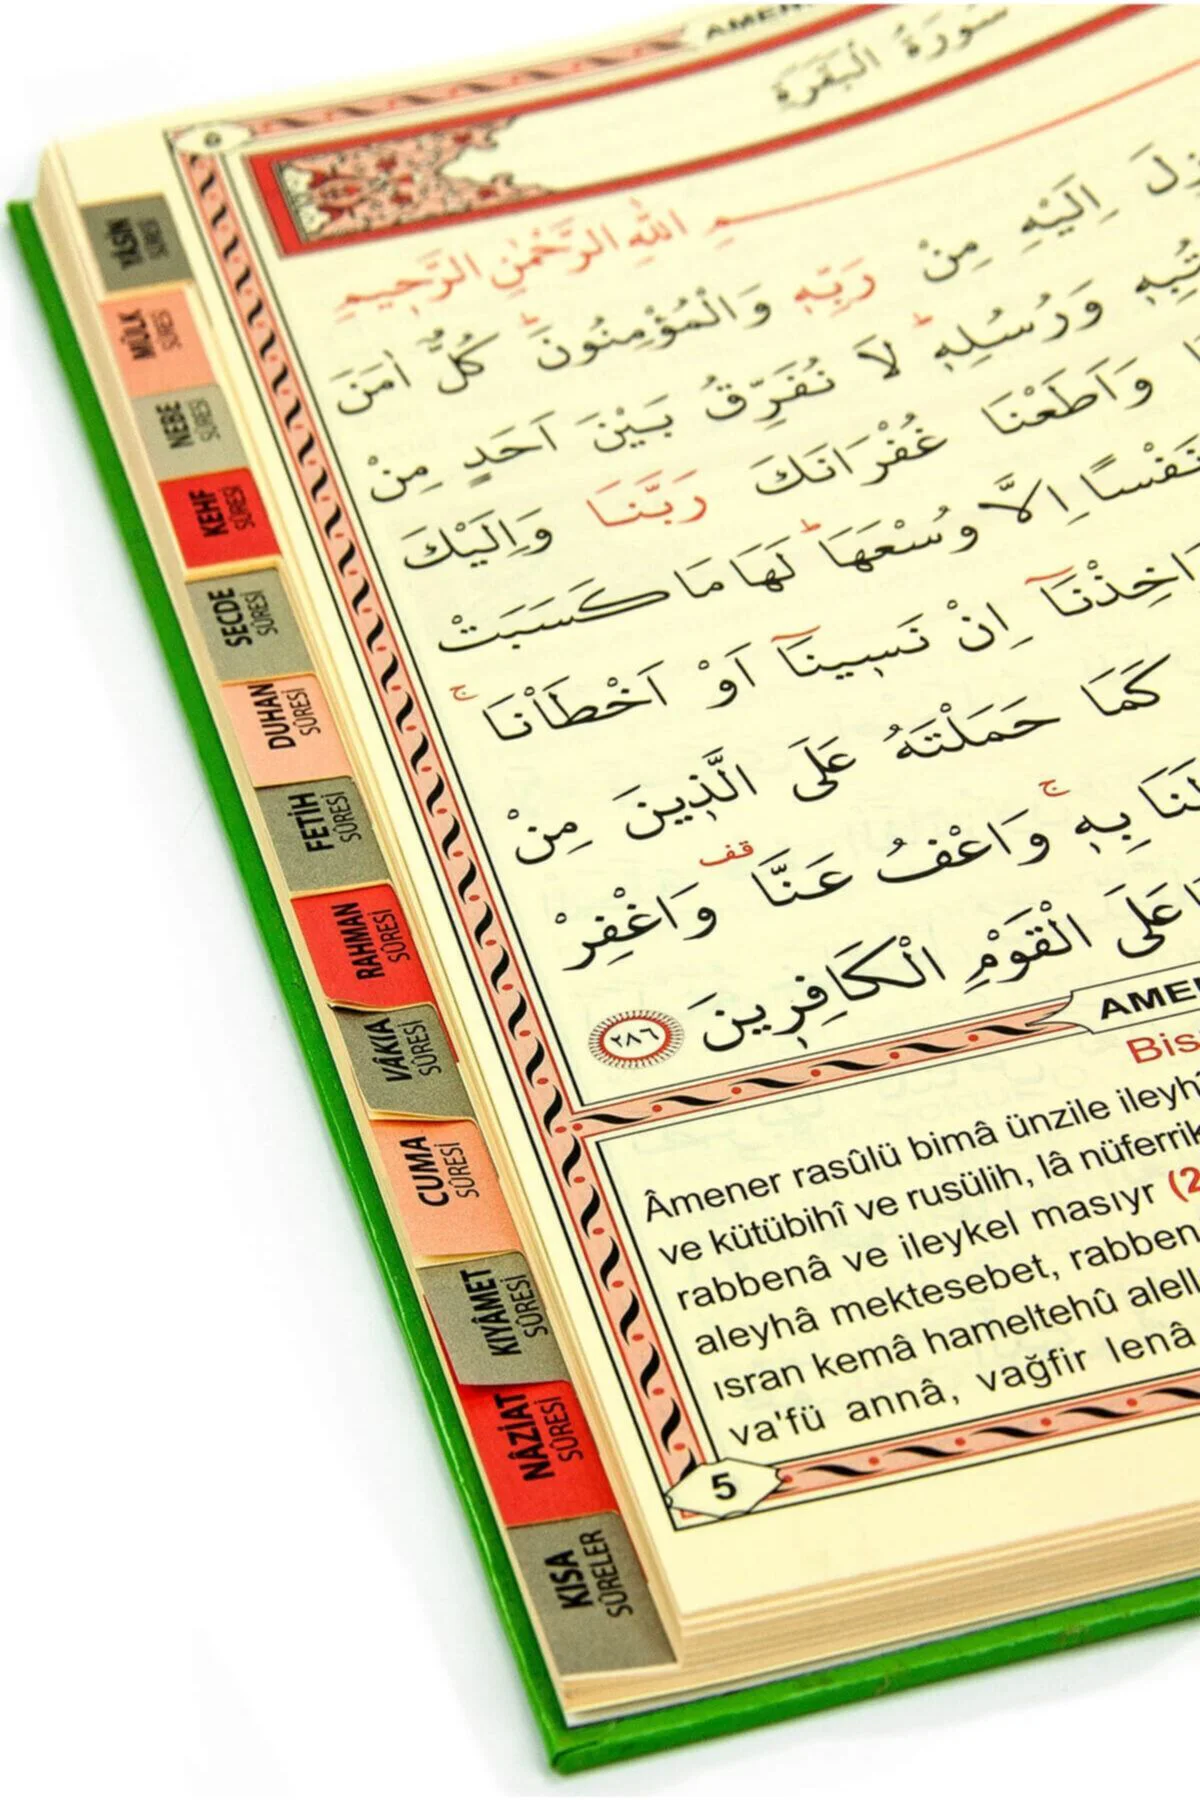 AMENE
سورة البقرة
٥
بِسْمِ اللّٰهِ الرَّحْمٰنِ الرَّحِيمِ
اِلَيْهِ مِنْ رَبِّهِ وَالْمُؤْمِنُونَ كُلٌّ اٰمَنَ
وَرُسُلِهِ لَا نُفَرِّقُ بَيْنَ اَحَدٍ مِنْ
وَاَطَعْنَا غُفْرَانَكَ رَبَّنَا وَاِلَيْكَ
نَفْسًا اِلَّا وُسْعَهَا لَهَا مَا كَسَبَتْ
اِنْ نَسِينَا اَوْ اَخْطَاْنَا ج
كَمَا حَمَلْتَهُ عَلَى الَّذِينَ مِنْ
بِهِ ج وَاعْفُ عَنَّا قف وَاغْفِرْ
عَلَى الْقَوْمِ الْكَافِرِينَ ٢٨٦
AMENE
Bis
Âmener rasûlü bimâ ünzile ileyhi
ve kütübihî ve rusülih, lâ nüferrik
rabbenâ ve ileykel masıyr (2
aleyhâ mektesebet, rabben
ısran kemâ hameltehû alell
va'fü annâ, vağfir lenâ
5
YÂSİN SÛRESİ
MÜLK SÛRESİ
NEBE SÛRESİ
KEHF SÛRESİ
SECDE SÛRESİ
DUHAN SÛRESİ
FETİH SÛRESİ
RAHMAN SÛRESİ
VÂKIA SÛRESİ
CUMA SÛRESİ
KIYÂMET SÛRESİ
NÂZİAT SÛRESİ
KISA SÛRELER